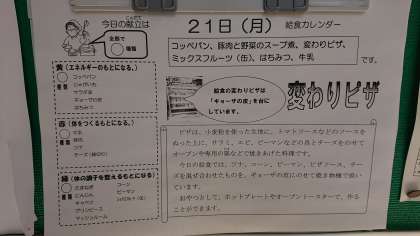 今日の献立は
全部で
種類
21日（月）
給食カレンダー
コッペパン、豚肉と野菜のスープ煮、変わりピザ、
ミックスフルーツ（缶）、はちみつ、牛乳
です。
黄（エネルギーのもとになる。）
種類
コッペパン
じゃがいも
ギョーザの皮
はちみつ
赤（体をつくるもとになる。）
種類
ツナ
緑（体の調子を整えるもとになる）
種類
たまねぎ
にんじん
キャベツ
グリンピース
マッシュルーム
コーン
ピーマン
給食の変わりピザは
「ギョーザの皮」を台に
しています。
変わりピザ
ピザは、小麦粉を使った生地に、トマトソースなどのソースを
ぬった上に、サラミ、エビ、ピーマンなどの具とチーズをのせて
オーブンや専用の窯などで焼きあげた料理です。
今日の給食では、ツナ、コーン、ピーマン、ピザソース、チー
ズを混ぜ合わせたものを、ギョーザの皮にのせて焼き物機で焼い
ています。
おやつとして、ホットプレートやオーブントースターで、作る
ことができます。